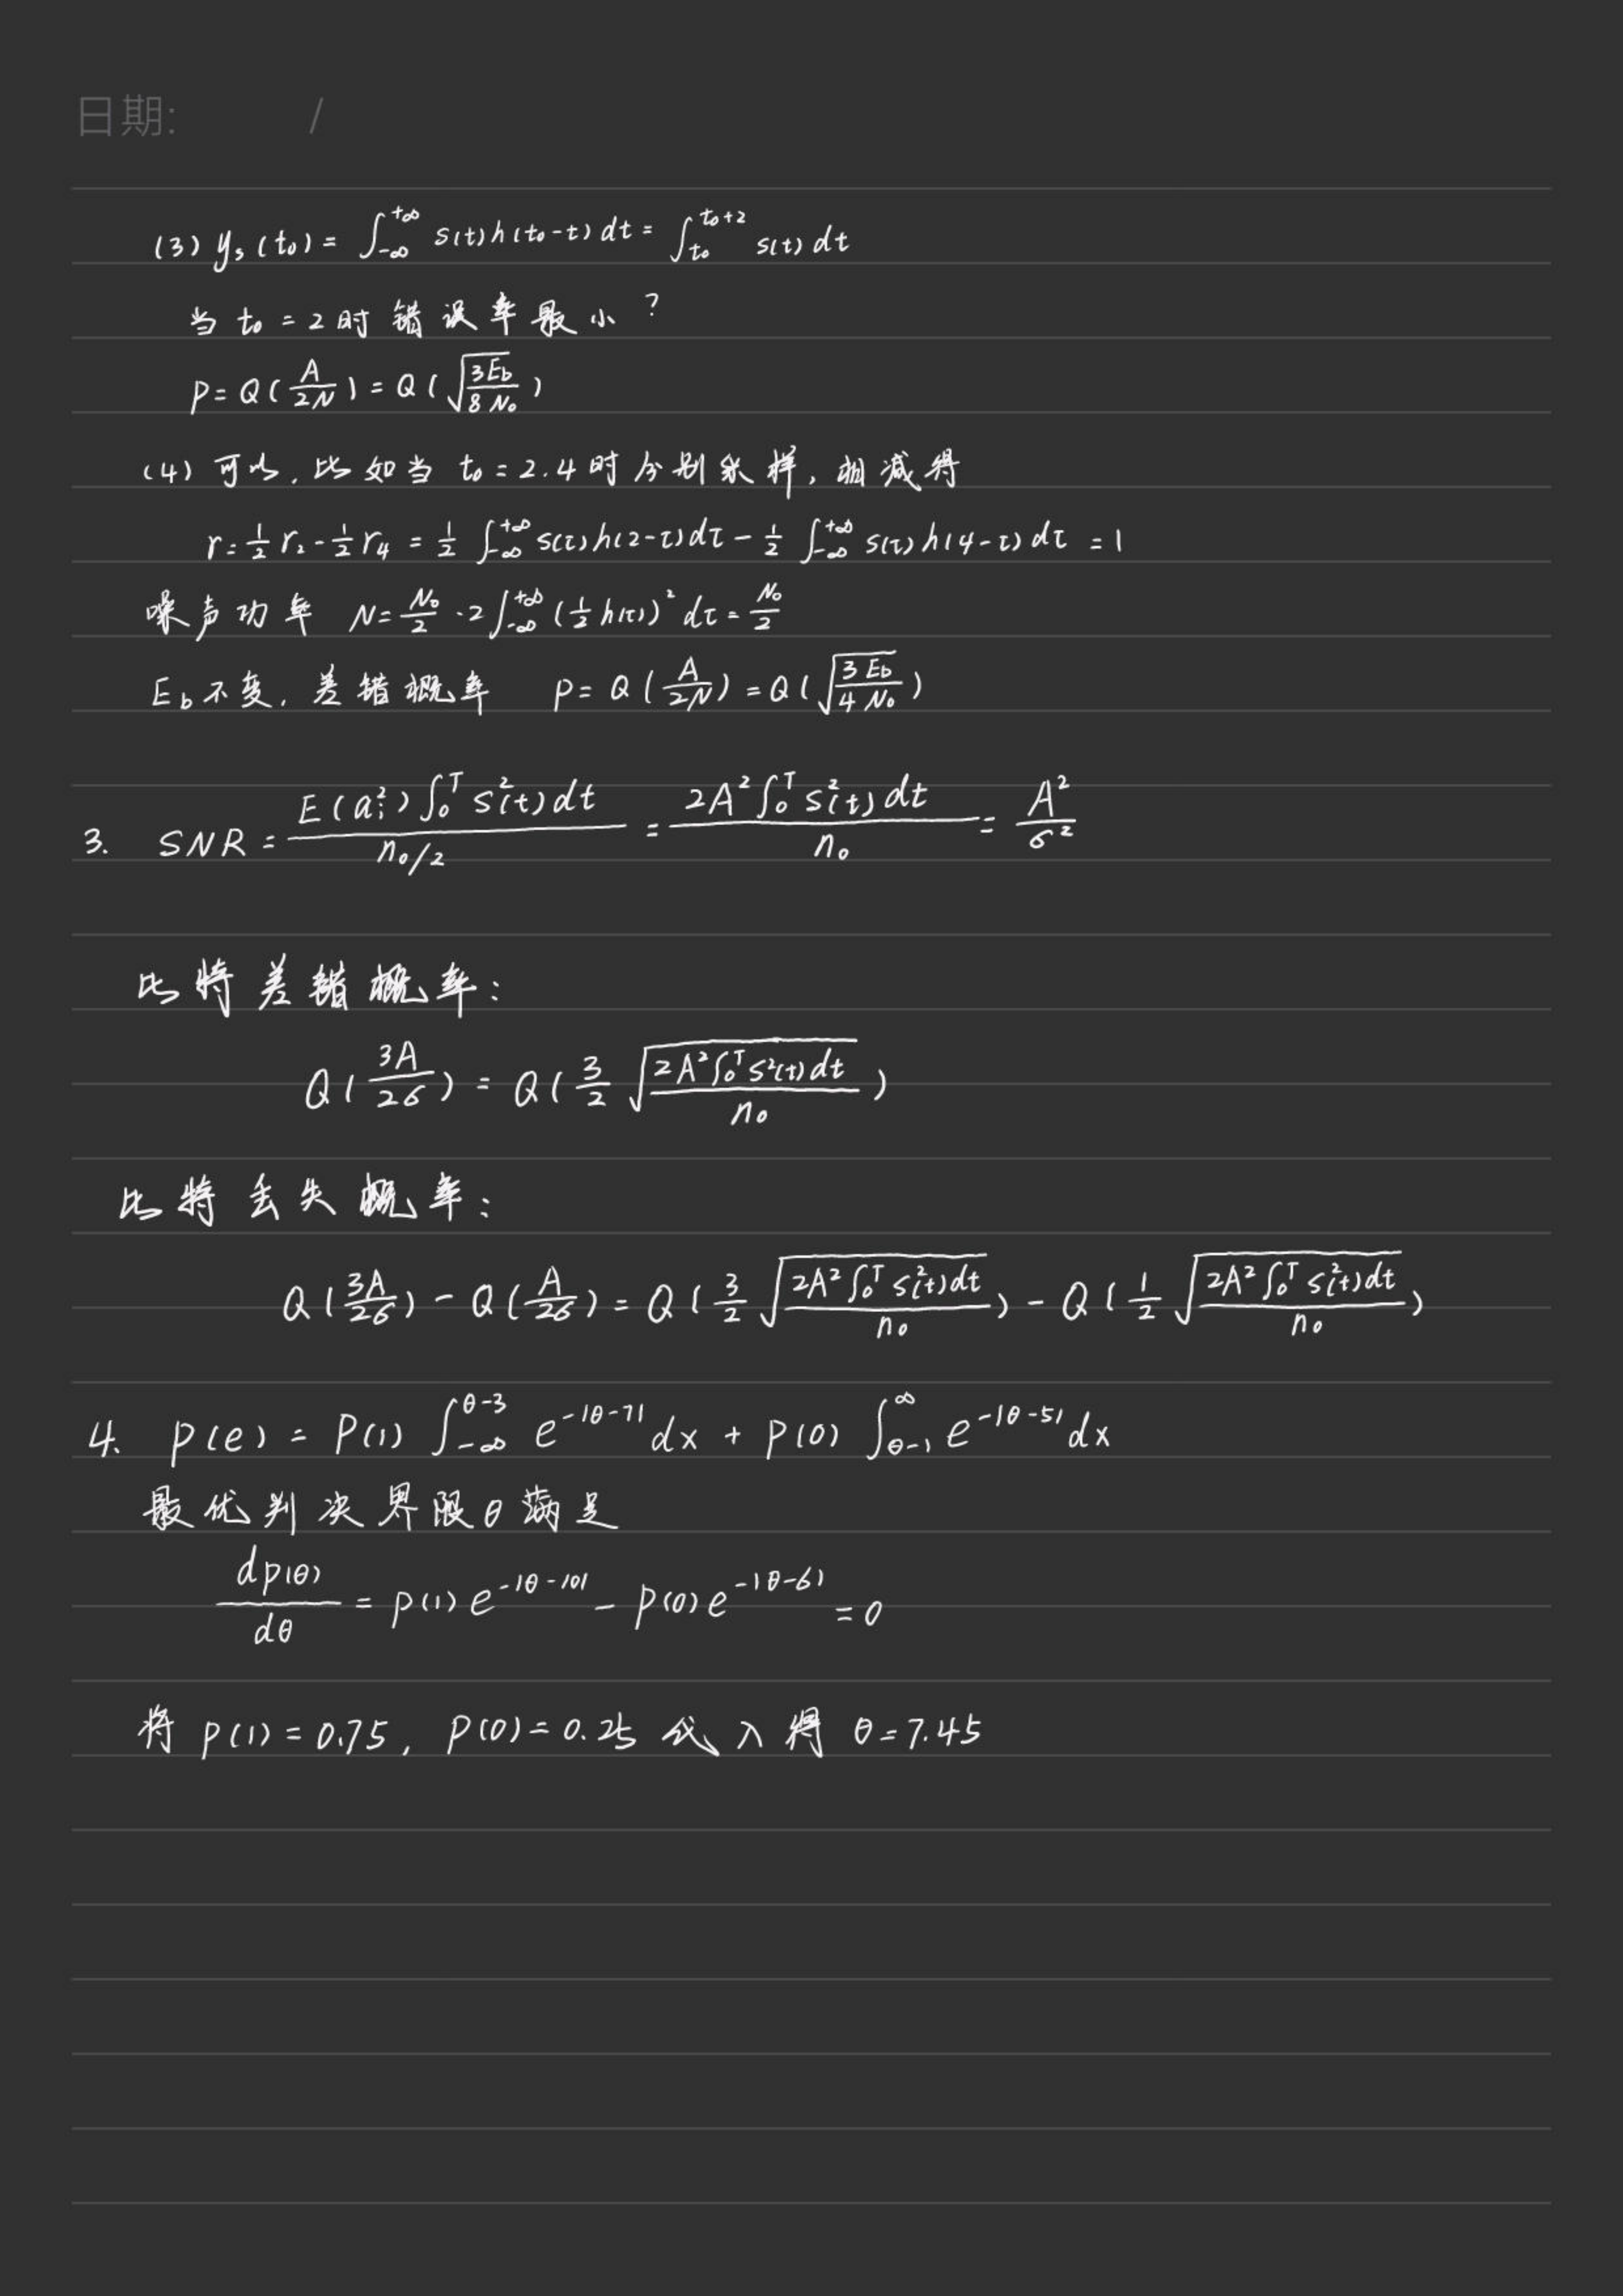 日期: /
(3) yₛ(t₀) = ∫_{-∞}^{+∞} s(t)h(t₀-t)dt = ∫_{t₀}^{t₀+2} s(t)dt
当 t₀ = 2时错误率最小?
P = Q(A/2N) = Q(√(3E_b/8N₀))
(4) 可以, 比如当 t₀ = 2.4时分别采样, 相减得
r = ½r₂ - ½r₄ = ½∫_{-∞}^{+∞} s(τ)h(2-τ)dτ - ½∫_{-∞}^{+∞} s(τ)h(4-τ)dτ = 1
噪声功率 N = N₀/2 · 2∫_{-∞}^{+∞} (½h(τ))² dτ = N₀/2
E_b不变, 差错概率 P = Q(A/2N) = Q(√(3E_b/4N₀))
3. SNR = E(aᵢ²)∫₀ᵀ s²(t)dt / (n₀/2) = 2A²∫₀ᵀ s²(t)dt / n₀ = A²/σ²
比特差错概率:
Q(3A/2σ) = Q(3/2 √(2A²∫₀ᵀ s²(t)dt / n₀))
比特丢失概率:
Q(3A/2σ) - Q(A/2σ) = Q(3/2 √(2A²∫₀ᵀ s²(t)dt / n₀)) - Q(1/2 √(2A²∫₀ᵀ s²(t)dt / n₀))
4. P(e) = P(1)∫_{-∞}^{θ-3} e^{-|θ-7|}dx + P(0)∫_{θ-1}^{∞} e^{-|θ-5|}dx
最优判决界限θ满足
dp(θ)/dθ = P(1)e^{-|θ-10|} - P(0)e^{-|θ-6|} = 0
将 P(1) = 0.75, P(0) = 0.25 代入得 θ = 7.45